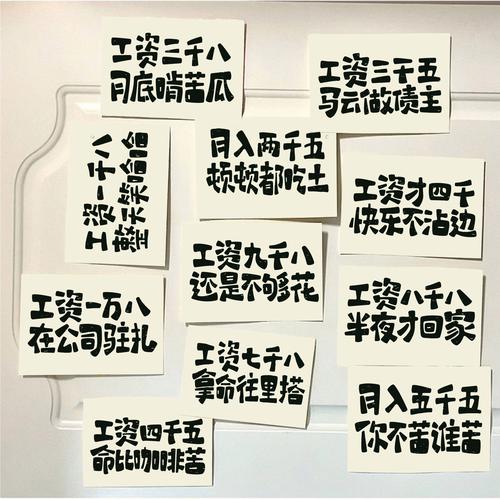 工资三千八
月底啃苦瓜
工资三千五
马云做债主
工资一千八
整天笑哈哈
月入两千五
顿顿都吃土
工资才四千
快乐不沾边
工资九千八
还是不够多花
工资一万八
在公司驻扎
工资八千八
半夜才回家
工资七千八
拿命往里搭
工资四千五
命比咖啡苦
月入五千五
你不苦谁苦